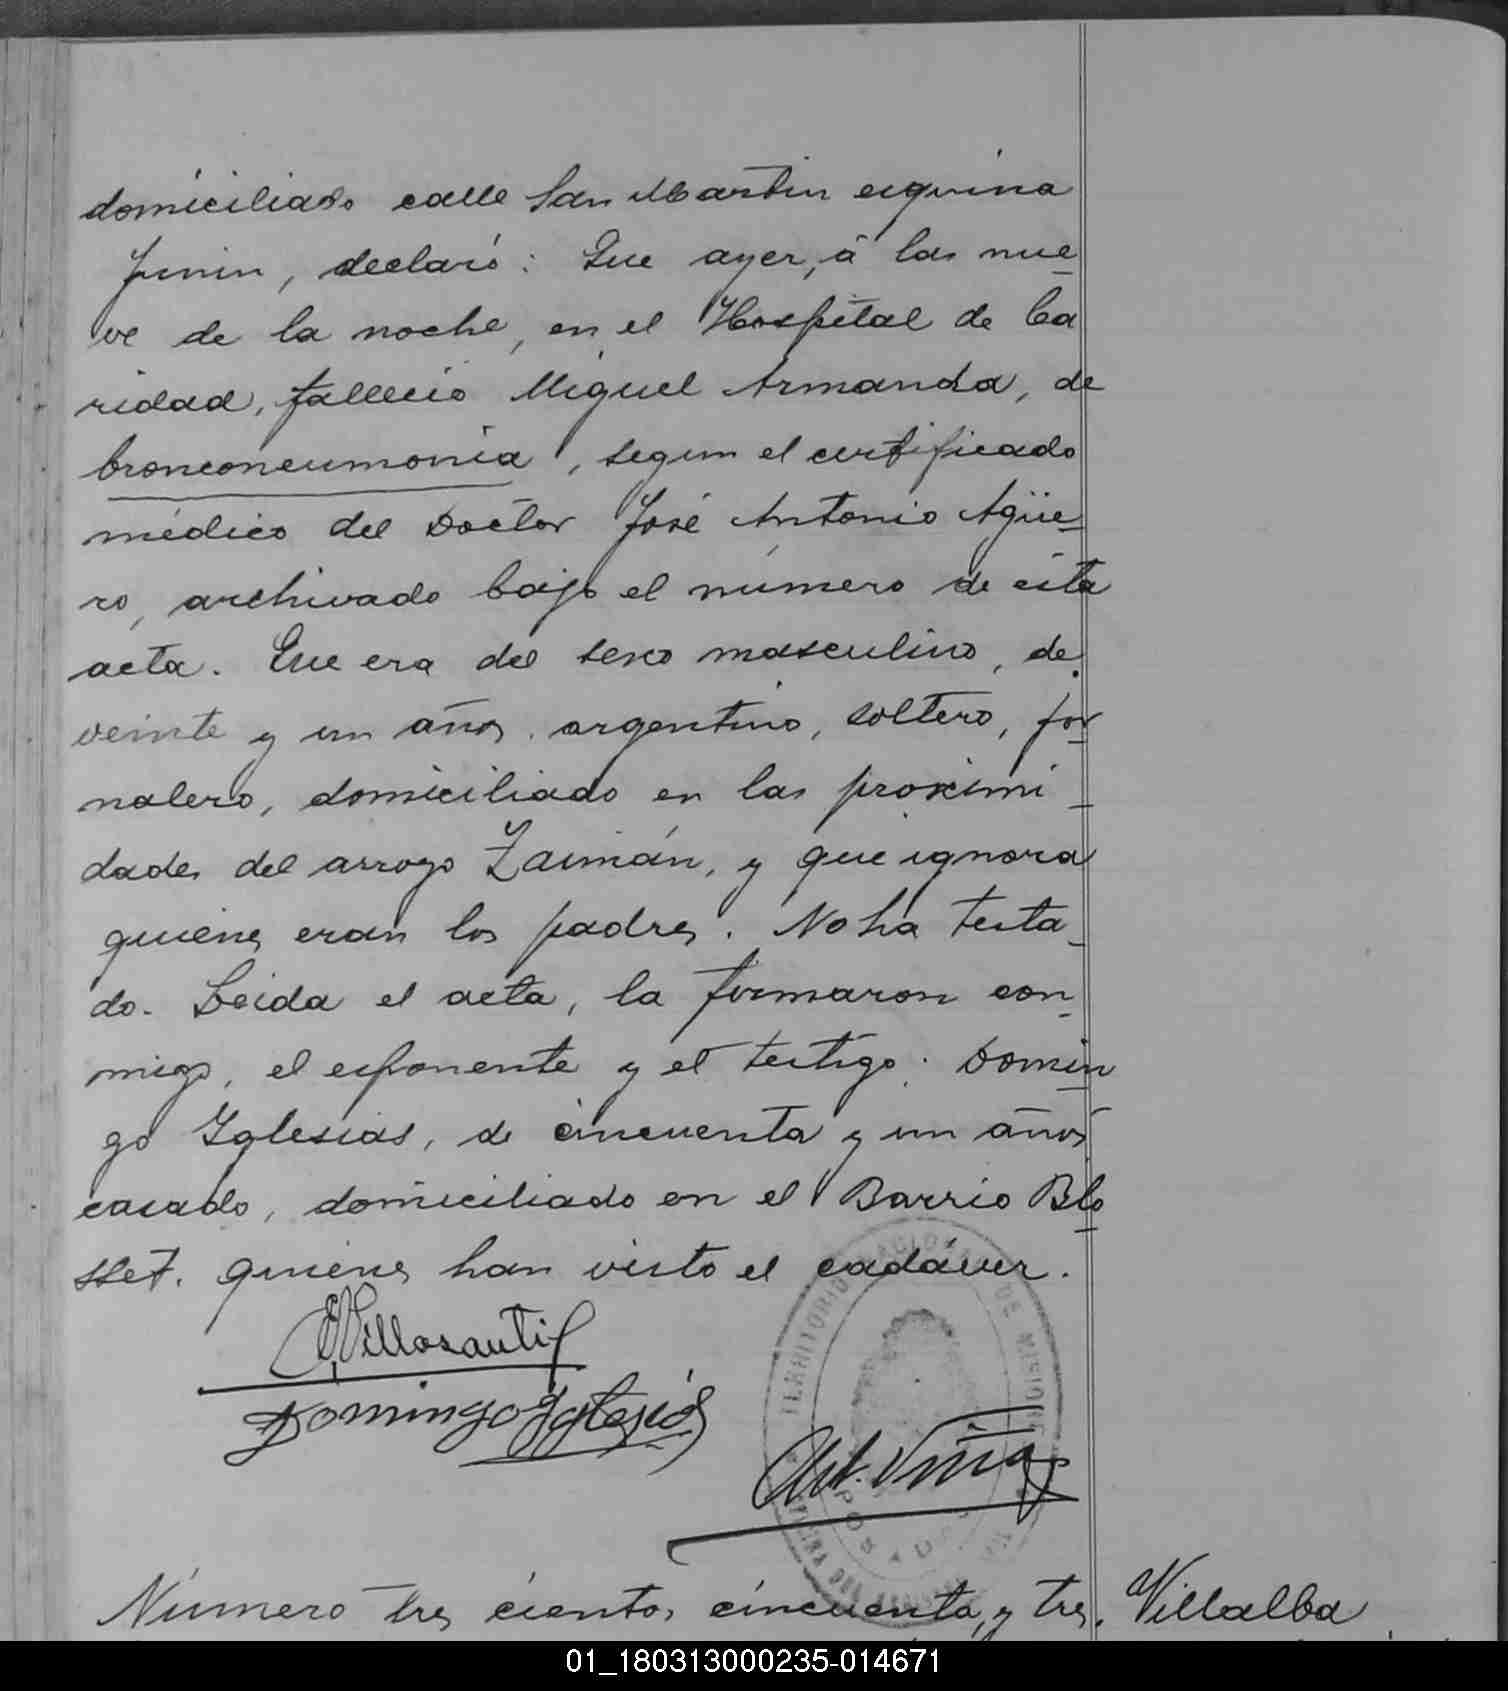 domiciliado calle San Martin esquina
Junin, declaró: Que ayer, á las nue-
ve de la noche, en el Hospital de Ca
ridad, falleció Miguel Armanda, de
bronconeumonia, segun el certificado
médico del Doctor José Antonio Agüe-
ro, archivado bajo el número de esta
acta. Que era del sexo masculino, de
veinte y un años, argentino, soltero, jor-
nalero, domiciliado en las proximi-
dades del arroyo Zaimán, y que ignora
quienes eran los padres. No ha testa-
do. Leida el acta, la firmaron con-
migo, el esponente y el testigo: Domin-
go Iglesias, de cincuenta y un años,
casado, domiciliado en el Barrio Blo-
sset, quienes han visto el cadáver.
Villasanti
Domingo Iglesias
TERRITORIO NACIONAL DE MISIONES
Número tres cientos cincuenta y tres. Villalba
01_180313000235-014671